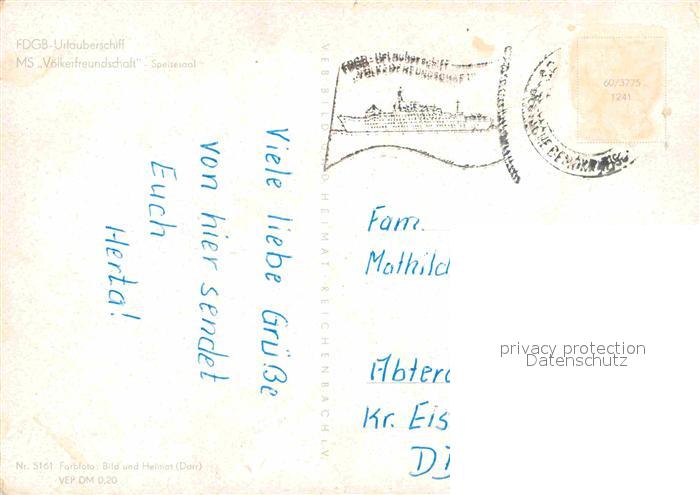 FDGB-Urlauberschiff
MS „Völkerfreundschaft" - Speisesaal
Viele liebe Grüße
von hier sendet
Euch
Herta!
Nr. 5161 Farbfoto: Bild und Heimat (Darr)
VEP DM 0,20
VEB BILD UND HEIMAT REICHENBACH I.V.
FDGB-Urlauberschiff
„VÖLKERFREUNDSCHAFT"
60/3775
1241
Fam.
Mathild
Abtero
Kr. Eis
privacy protection
Datenschutz